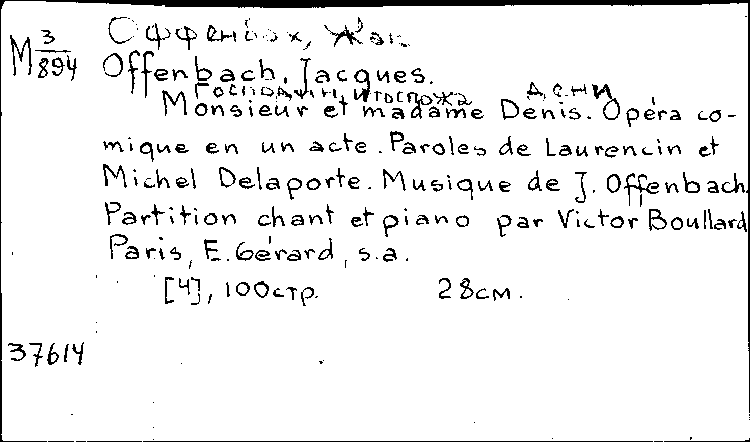 М 3/894
Оффенбах, Жак.
Offenbach, Jacques.
Господин и госпожа Дени
Monsieur et madame Denis. Opéra co-
mique en un acte. Paroles de Laurencin et
Michel Delaporte. Musique de J. Offenbach.
Partition chant et piano par Victor Boullard
Paris, E. Gérard, s.a.
[4], 100 стр. 28 см.
37614